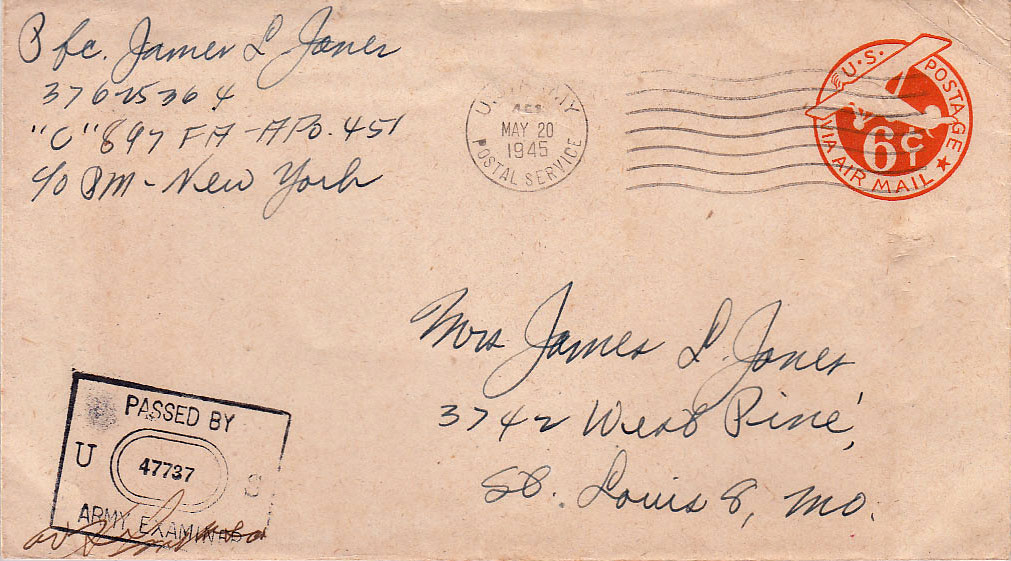 Pfc. James L Jones
37625364
"C" 897 FA - APO. 451
c/o PM - New York
U.S. ARMY
MAY 20
1945
POSTAL SERVICE
U.S. POSTAGE
6c
VIA AIR MAIL
Mrs James L. Jones
3742 West Pine,
St. Louis 8, Mo.
PASSED BY
U 47737 S
ARMY EXAMINER